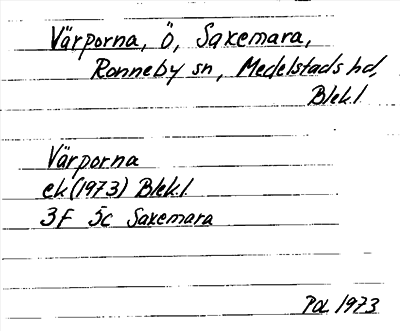 Värporna, Ö, Saxemara,
Ronneby sn, Medelstads hd,
Blek.l
Värporna
ek (1973) Blek.l.
3F 5c Saxemara
Pol 1973